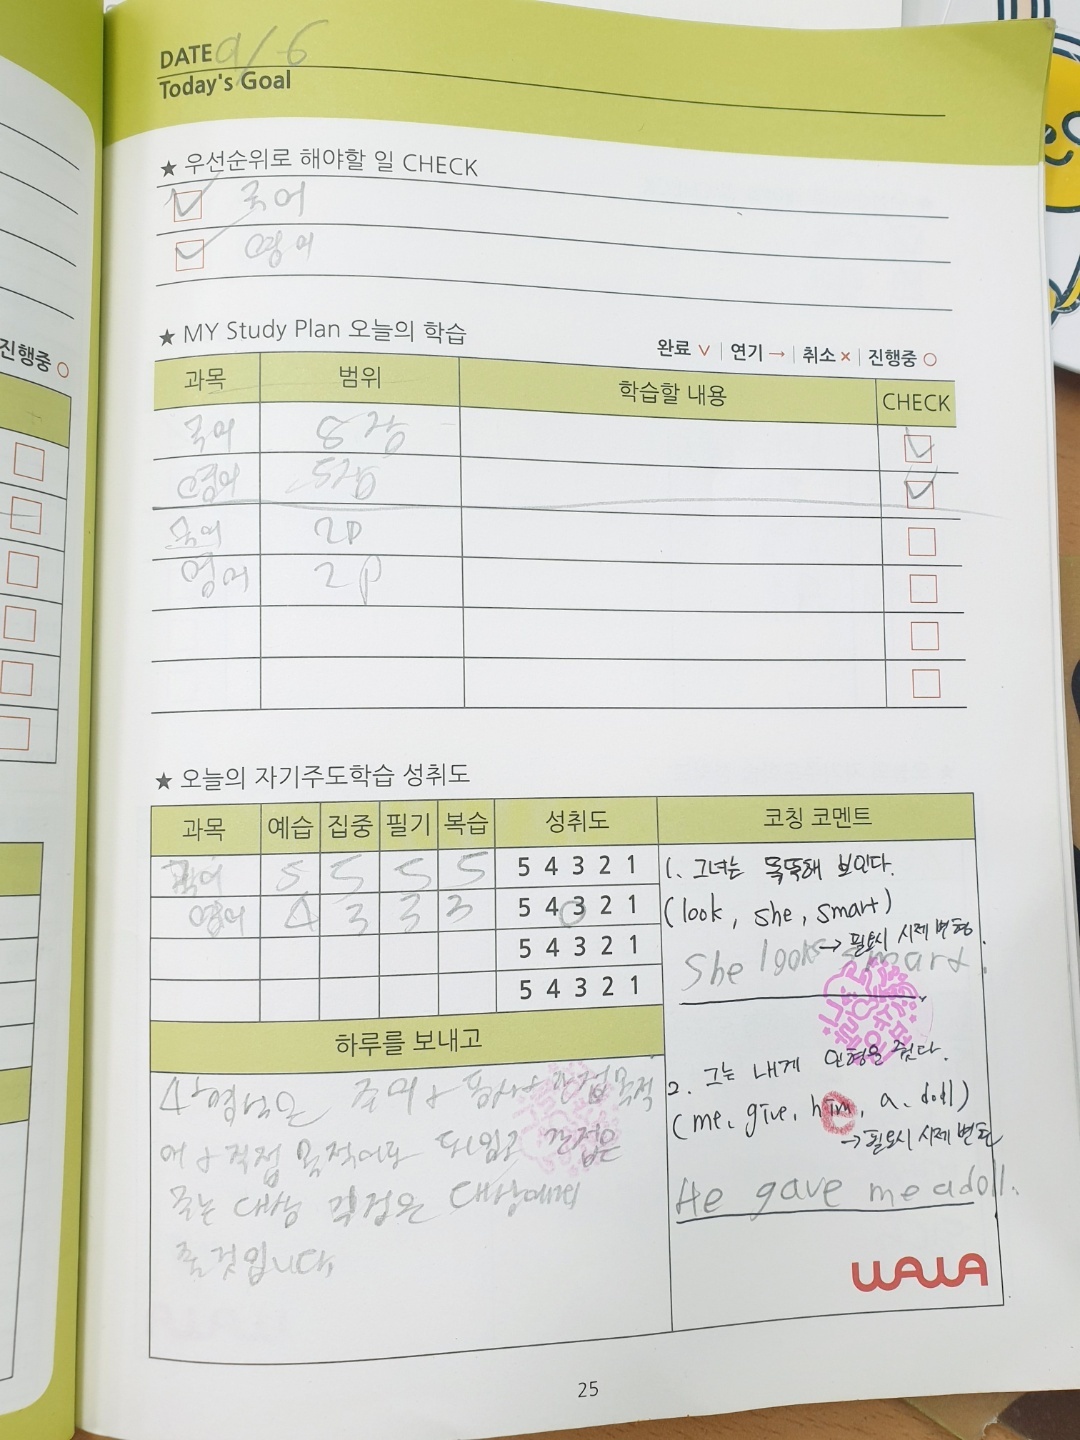 DATE 9/6
Today's Goal
★ 우선순위로 해야할 일 CHECK
국어
영어
★ MY Study Plan 오늘의 학습
완료 ∨ | 연기 → | 취소 × | 진행중 ○
진행중 ○
과목 범위 학습할 내용 CHECK
국어 8장
영어 5장
국어 2p
영어 2p
★ 오늘의 자기주도학습 성취도
과목 예습 집중 필기 복습 성취도 코칭 코멘트
국어 5 5 5 5 5 4 3 2 1
영어 4 3 3 3 5 4 3 2 1
5 4 3 2 1
5 4 3 2 1
1. 그녀는 똑똑해 보인다.
(look, she, smart)
→ 필요시 시제 변형.
She looks smart.
2. 그는 내게 인형을 줬다.
(me, give, him, a, doll)
→ 필요시 시제 변형
He gave me a doll.
하루를 보내고
4형식은 주어+동사+간접목적
어+직접 목적어로 되있고 간접은
주는 대상 직접은 대상에게
줄 것입니다
WAWA
25